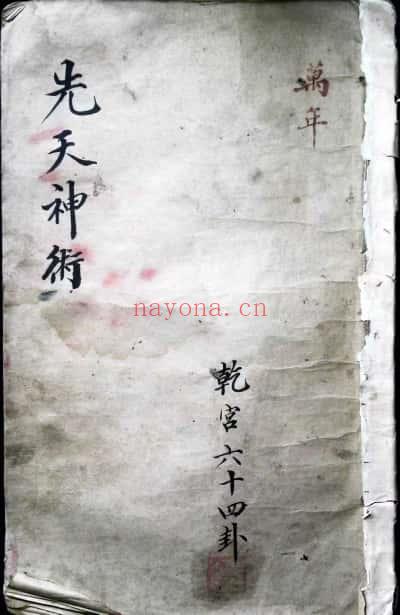 萬年
先天神術
乾宮六十四卦
nayona.cn